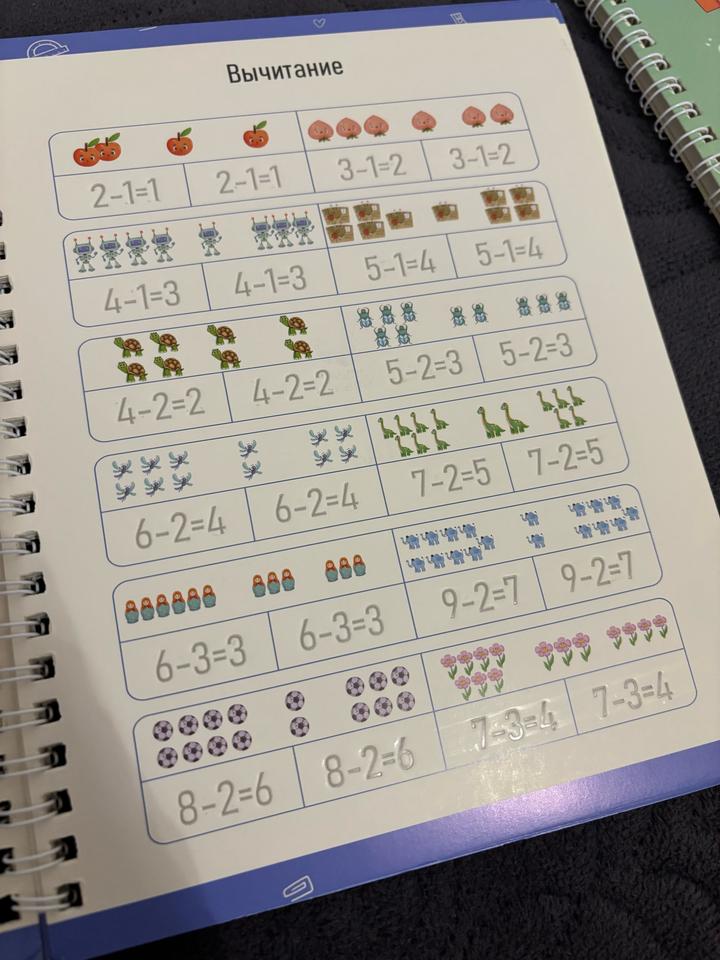 Вычитание
2-1=1 2-1=1 3-1=2 3-1=2
4-1=3 4-1=3 5-1=4 5-1=4
4-2=2 4-2=2 5-2=3 5-2=3
6-2=4 6-2=4 7-2=5 7-2=5
6-3=3 6-3=3 9-2=7 9-2=7
8-2=6 8-2=6 7-3=4 7-3=4